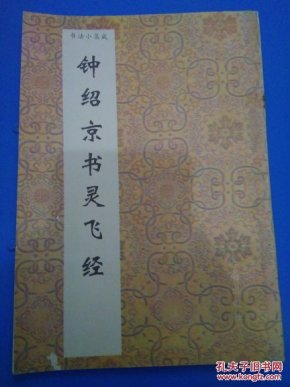 书法小集成
钟绍京书灵飞经
孔夫子旧书网